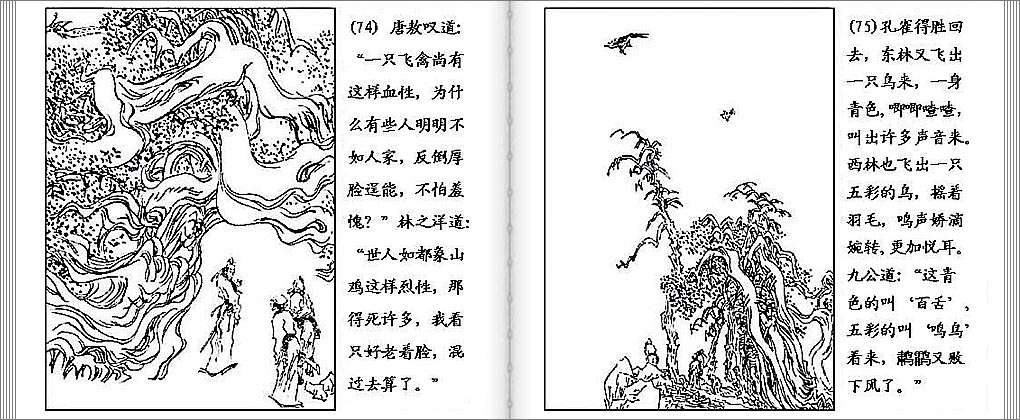 (74) 唐敖叹道:
“一只飞禽尚有
这样血性，为什
么有些人明明不
如人家，反倒厚
脸逞能，不怕羞
愧？”林之洋道:
“世人如都象山
鸡这样烈性，那
得死许多，我看
只好老着脸，混
过去算了。”
(75)孔雀得胜回
去，东林又飞出
一只鸟来，一身
青色，唧唧喳喳，
叫出许多声音来。
西林也飞出一只
五彩的鸟，摇着
羽毛，鸣声娇滴
婉转，更加悦耳。
九公道：“这青
色的叫‘百舌’，
五彩的叫‘鸣鸟’
看来，鹔鹴又败
下风了。”